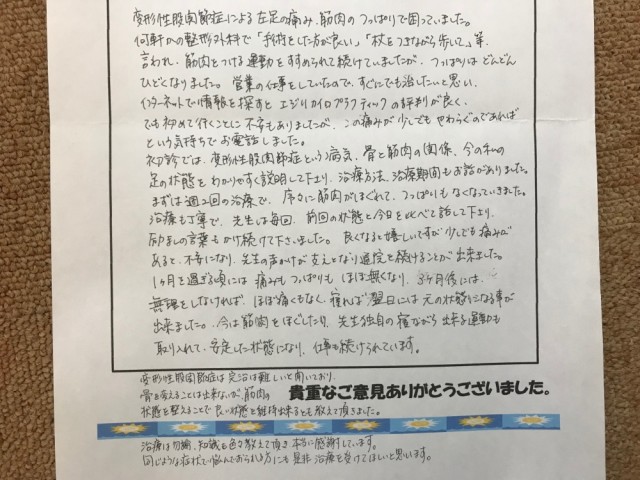 変形性股関節症による左足の痛み、筋肉のつっぱりで困っていました。
何軒かの整形外科で「手術をした方が良い」「杖をつきながら歩いて」等、
言われ、筋肉をつける運動をすすめられて続けていましたが、つっぱりはどんどん
ひどくなりました。営業の仕事をしていたので、すぐにでも治したいと思い、
インターネットで情報を探すと エジリカイロプラクティックの評判が良く、
でも初めて行くことに不安もありましたが、この痛みが少しでもやわらぐのであれば
という気持ちでお電話しました。
初診では、変形性股関節症という病気、骨と筋肉の関係、今の私の
足の状態をわかりやすく説明して下さり、治療方法、治療期間もお話がありました。
まずは週2回の治療で、序々に筋肉がほぐれて、つっぱりもなくなっていきました。
治療も丁寧で、先生は毎回、前回の状態と今日を比べて話して下さり、
励ましの言葉もかけ続けて下さいました。良くなると嬉しいですが少しでも痛みが
あると、不安になり、先生の声かけが支えとなり通院を続けることが出来ました。
1ヶ月を過ぎる頃には 痛みもつっぱりも ほぼ無くなり、3ヶ月後には、
無理をしなければ、ほぼ痛くもなく、寝れば翌日には元の状態になる事が
出来ました。今は筋肉をほぐしたり、先生独自の寝ながら出来る運動も
取り入れて、安定した状態になり、仕事も続けられています。
変形性股関節症は完治は難しいと聞いており、
骨を変えることは出来ないが、筋肉の
状態を整えることで良い状態を維持出来るとも教えて頂きました。
貴重なご意見ありがとうございました。
治療は勿論、知識も色々教えて頂き本当に感謝しています。
同じような症状で悩んでおられる方にも是非治療を受けてほしいと思います。